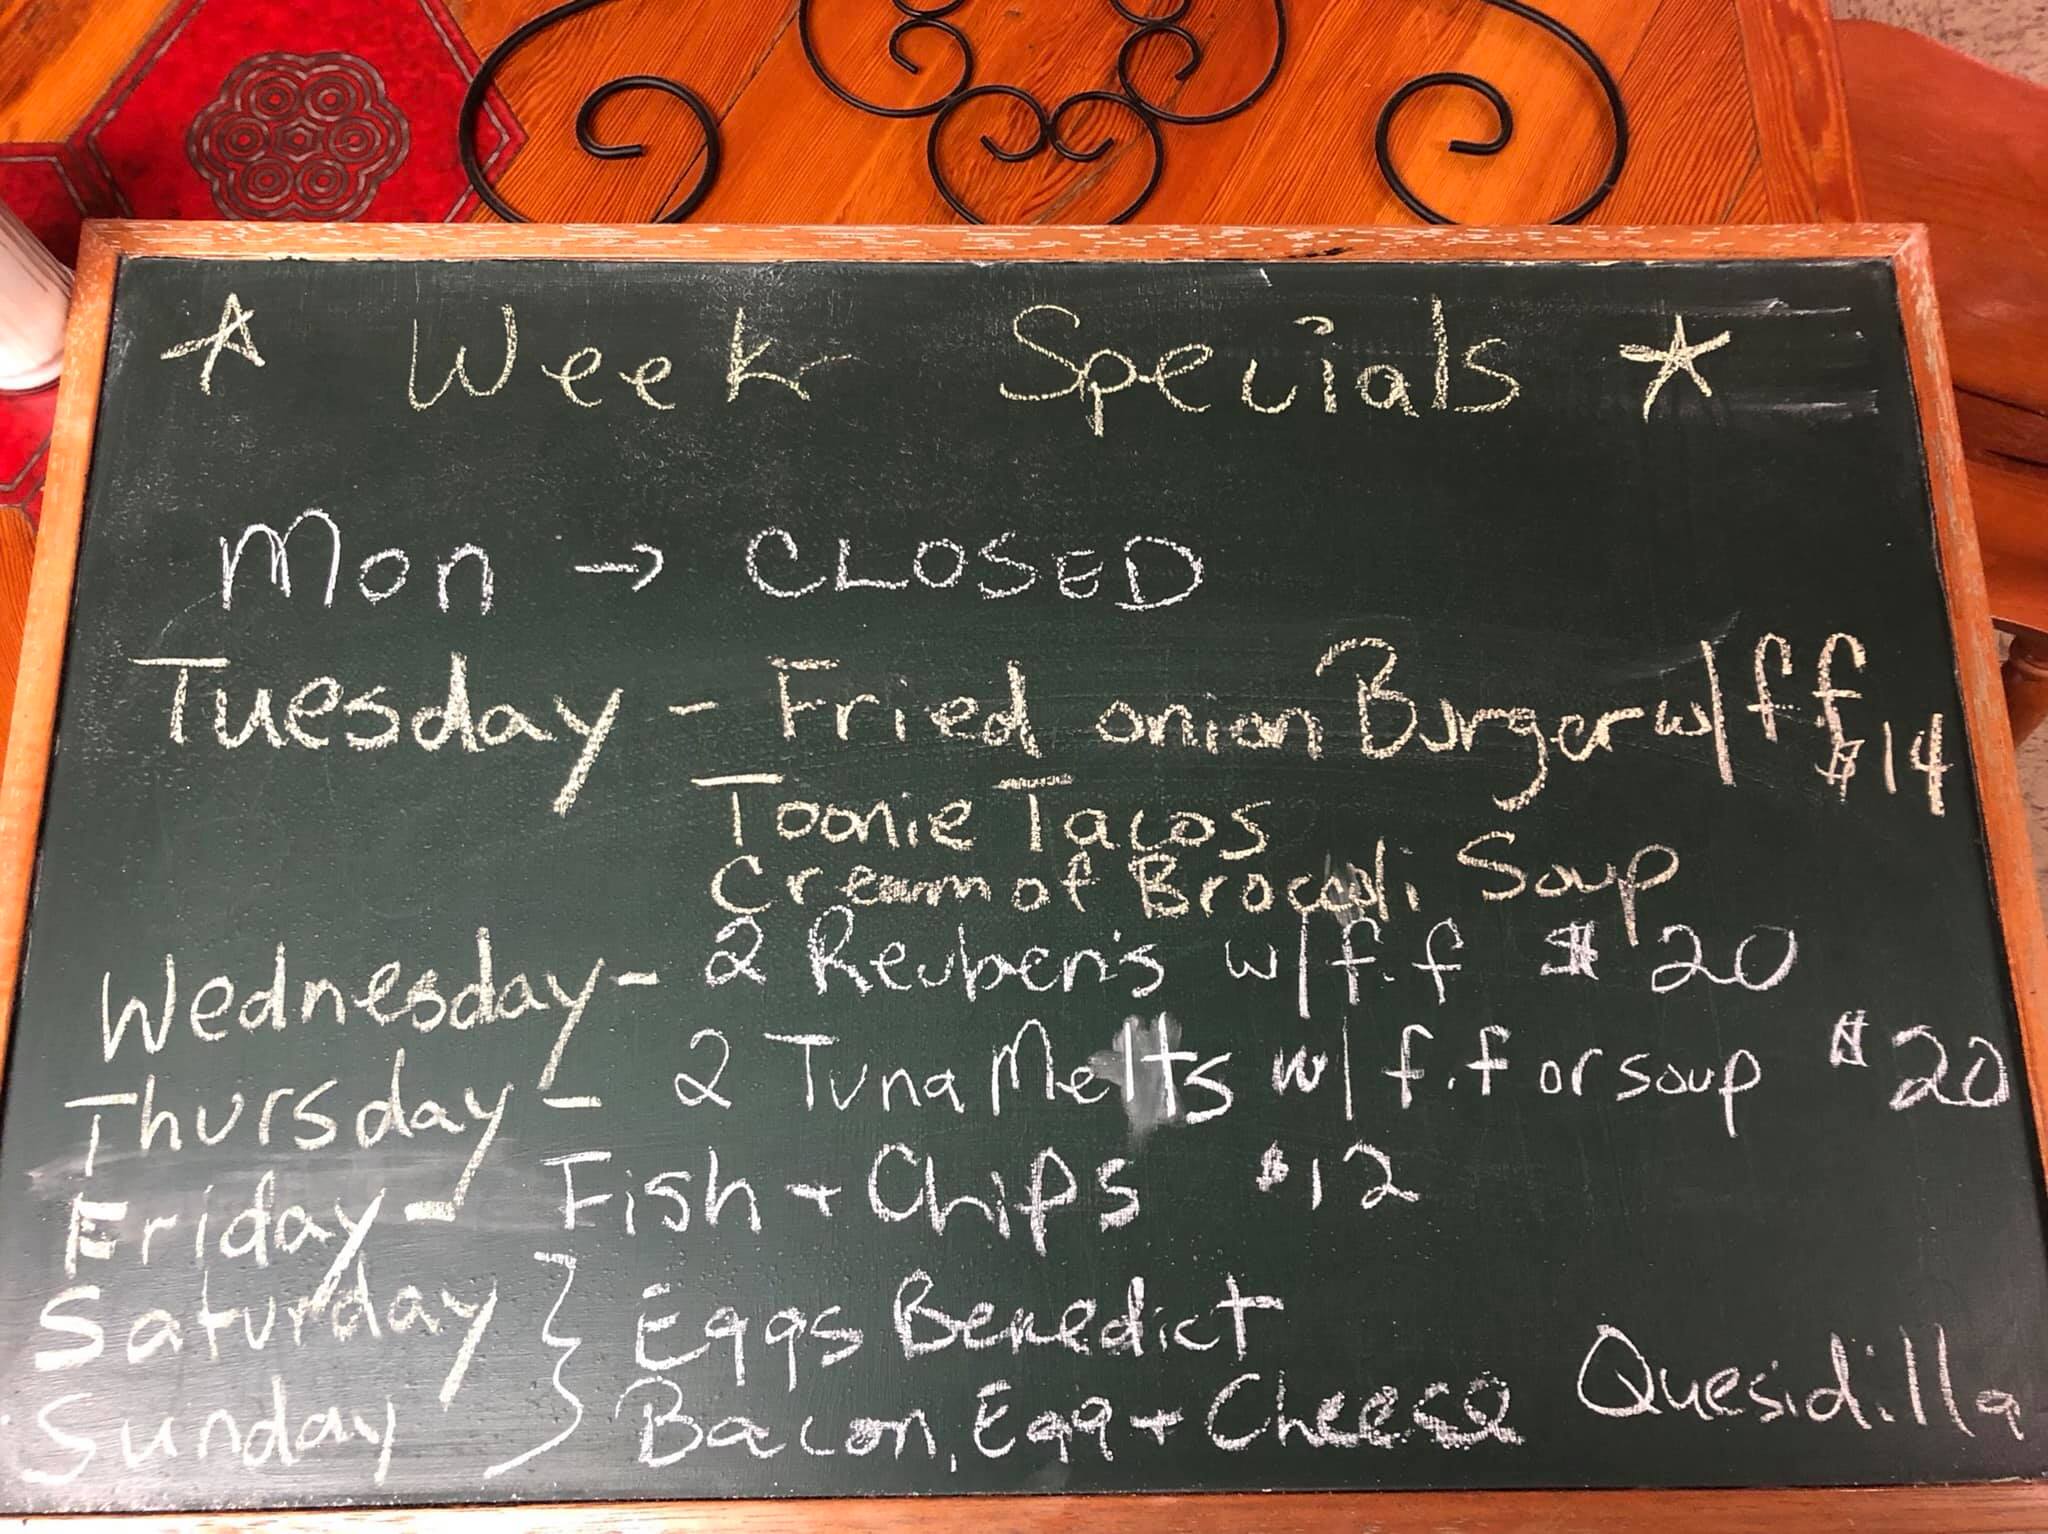 ☆ Week Specials ☆
Mon → CLOSED
Tuesday - Fried onion Burger w/ f.f $14
Toonie Tacos
Cream of Broccoli Soup
Wednesday - 2 Reuben's w/ f.f $20
Thursday - 2 Tuna Melts w/ f.f or soup $20
Friday - Fish + Chips $12
Saturday } Eggs Benedict
Sunday Bacon, Egg + Cheese Quesidilla